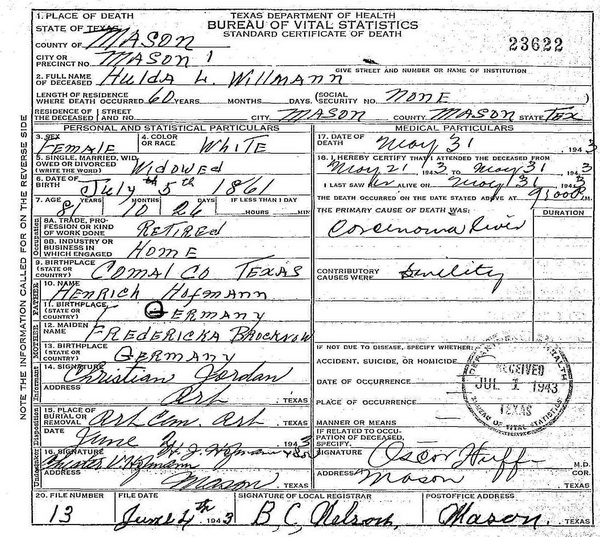 TEXAS DEPARTMENT OF HEALTH
BUREAU OF VITAL STATISTICS
STANDARD CERTIFICATE OF DEATH
23622
1. PLACE OF DEATH
STATE OF TEXAS
COUNTY OF MASON
CITY OR PRECINCT NO. MASON 1
GIVE STREET AND NUMBER OR NAME OF INSTITUTION
2. FULL NAME OF DECEASED Hulda L. Willmann
LENGTH OF RESIDENCE WHERE DEATH OCCURRED 60 YEARS MONTHS DAYS (SOCIAL SECURITY NO. NONE)
RESIDENCE OF THE DECEASED (STREET AND NO. CITY MASON COUNTY MASON STATE TEX
PERSONAL AND STATISTICAL PARTICULARS
3. SEX FEMALE
4. COLOR OR RACE WHITE
5. SINGLE, MARRIED, WIDOWED OR DIVORCED (WRITE THE WORD) WIDOWED
6. DATE OF BIRTH July 5th 1861
7. AGE YEARS 81 MONTHS 10 DAYS 26 IF LESS THAN 1 DAY HOURS MIN
8A. TRADE, PROFESSION OR KIND OF WORK DONE RETIRED
8B. INDUSTRY OR BUSINESS IN WHICH ENGAGED HOME
9. BIRTHPLACE (STATE OR COUNTRY) COMAL CO TEXAS
10. NAME HENRICH HOFMANN
11. BIRTHPLACE (STATE OR COUNTRY) GERMANY
12. MAIDEN NAME FREDERICKA
13. BIRTHPLACE (STATE OR COUNTRY) GERMANY
14. SIGNATURE Christian Jordan
ADDRESS Art TEXAS
15. PLACE OF BURIAL OR REMOVAL Art Cem. Art TEXAS
DATE June 1943
16. SIGNATURE
ADDRESS Mason TEXAS
MEDICAL PARTICULARS
17. DATE OF DEATH May 31 1943
18. I HEREBY CERTIFY THAT I ATTENDED THE DECEASED FROM
May 21 1943 TO May 31 1943
I LAST SAW her ALIVE ON May 31 1943
THE DEATH OCCURRED ON THE DATE STATED ABOVE AT M.
THE PRIMARY CAUSE OF DEATH WAS: DURATION
Carcinoma liver
CONTRIBUTORY CAUSES WERE: Senility
IF NOT DUE TO DISEASE, SPECIFY WHETHER:
ACCIDENT, SUICIDE, OR HOMICIDE
DATE OF OCCURRENCE
PLACE OF OCCURRENCE
MANNER OR MEANS
IF RELATED TO OCCUPATION OF DECEASED, SPECIFY
RECEIVED
JUL 1 1943
TEXAS
BUREAU OF VITAL STATISTICS
SIGNATURE Oscar Huff M.D. COR.
ADDRESS Mason TEXAS
20. FILE NUMBER 13
FILE DATE June 4th 1943
SIGNATURE OF LOCAL REGISTRAR B. C. Nelson,
POSTOFFICE ADDRESS Mason, TEXAS
Occupation
FATHER
MOTHER
Informant
Disposition
Undertaker
NOTE THE INFORMATION CALLED FOR ON THE REVERSE SIDE